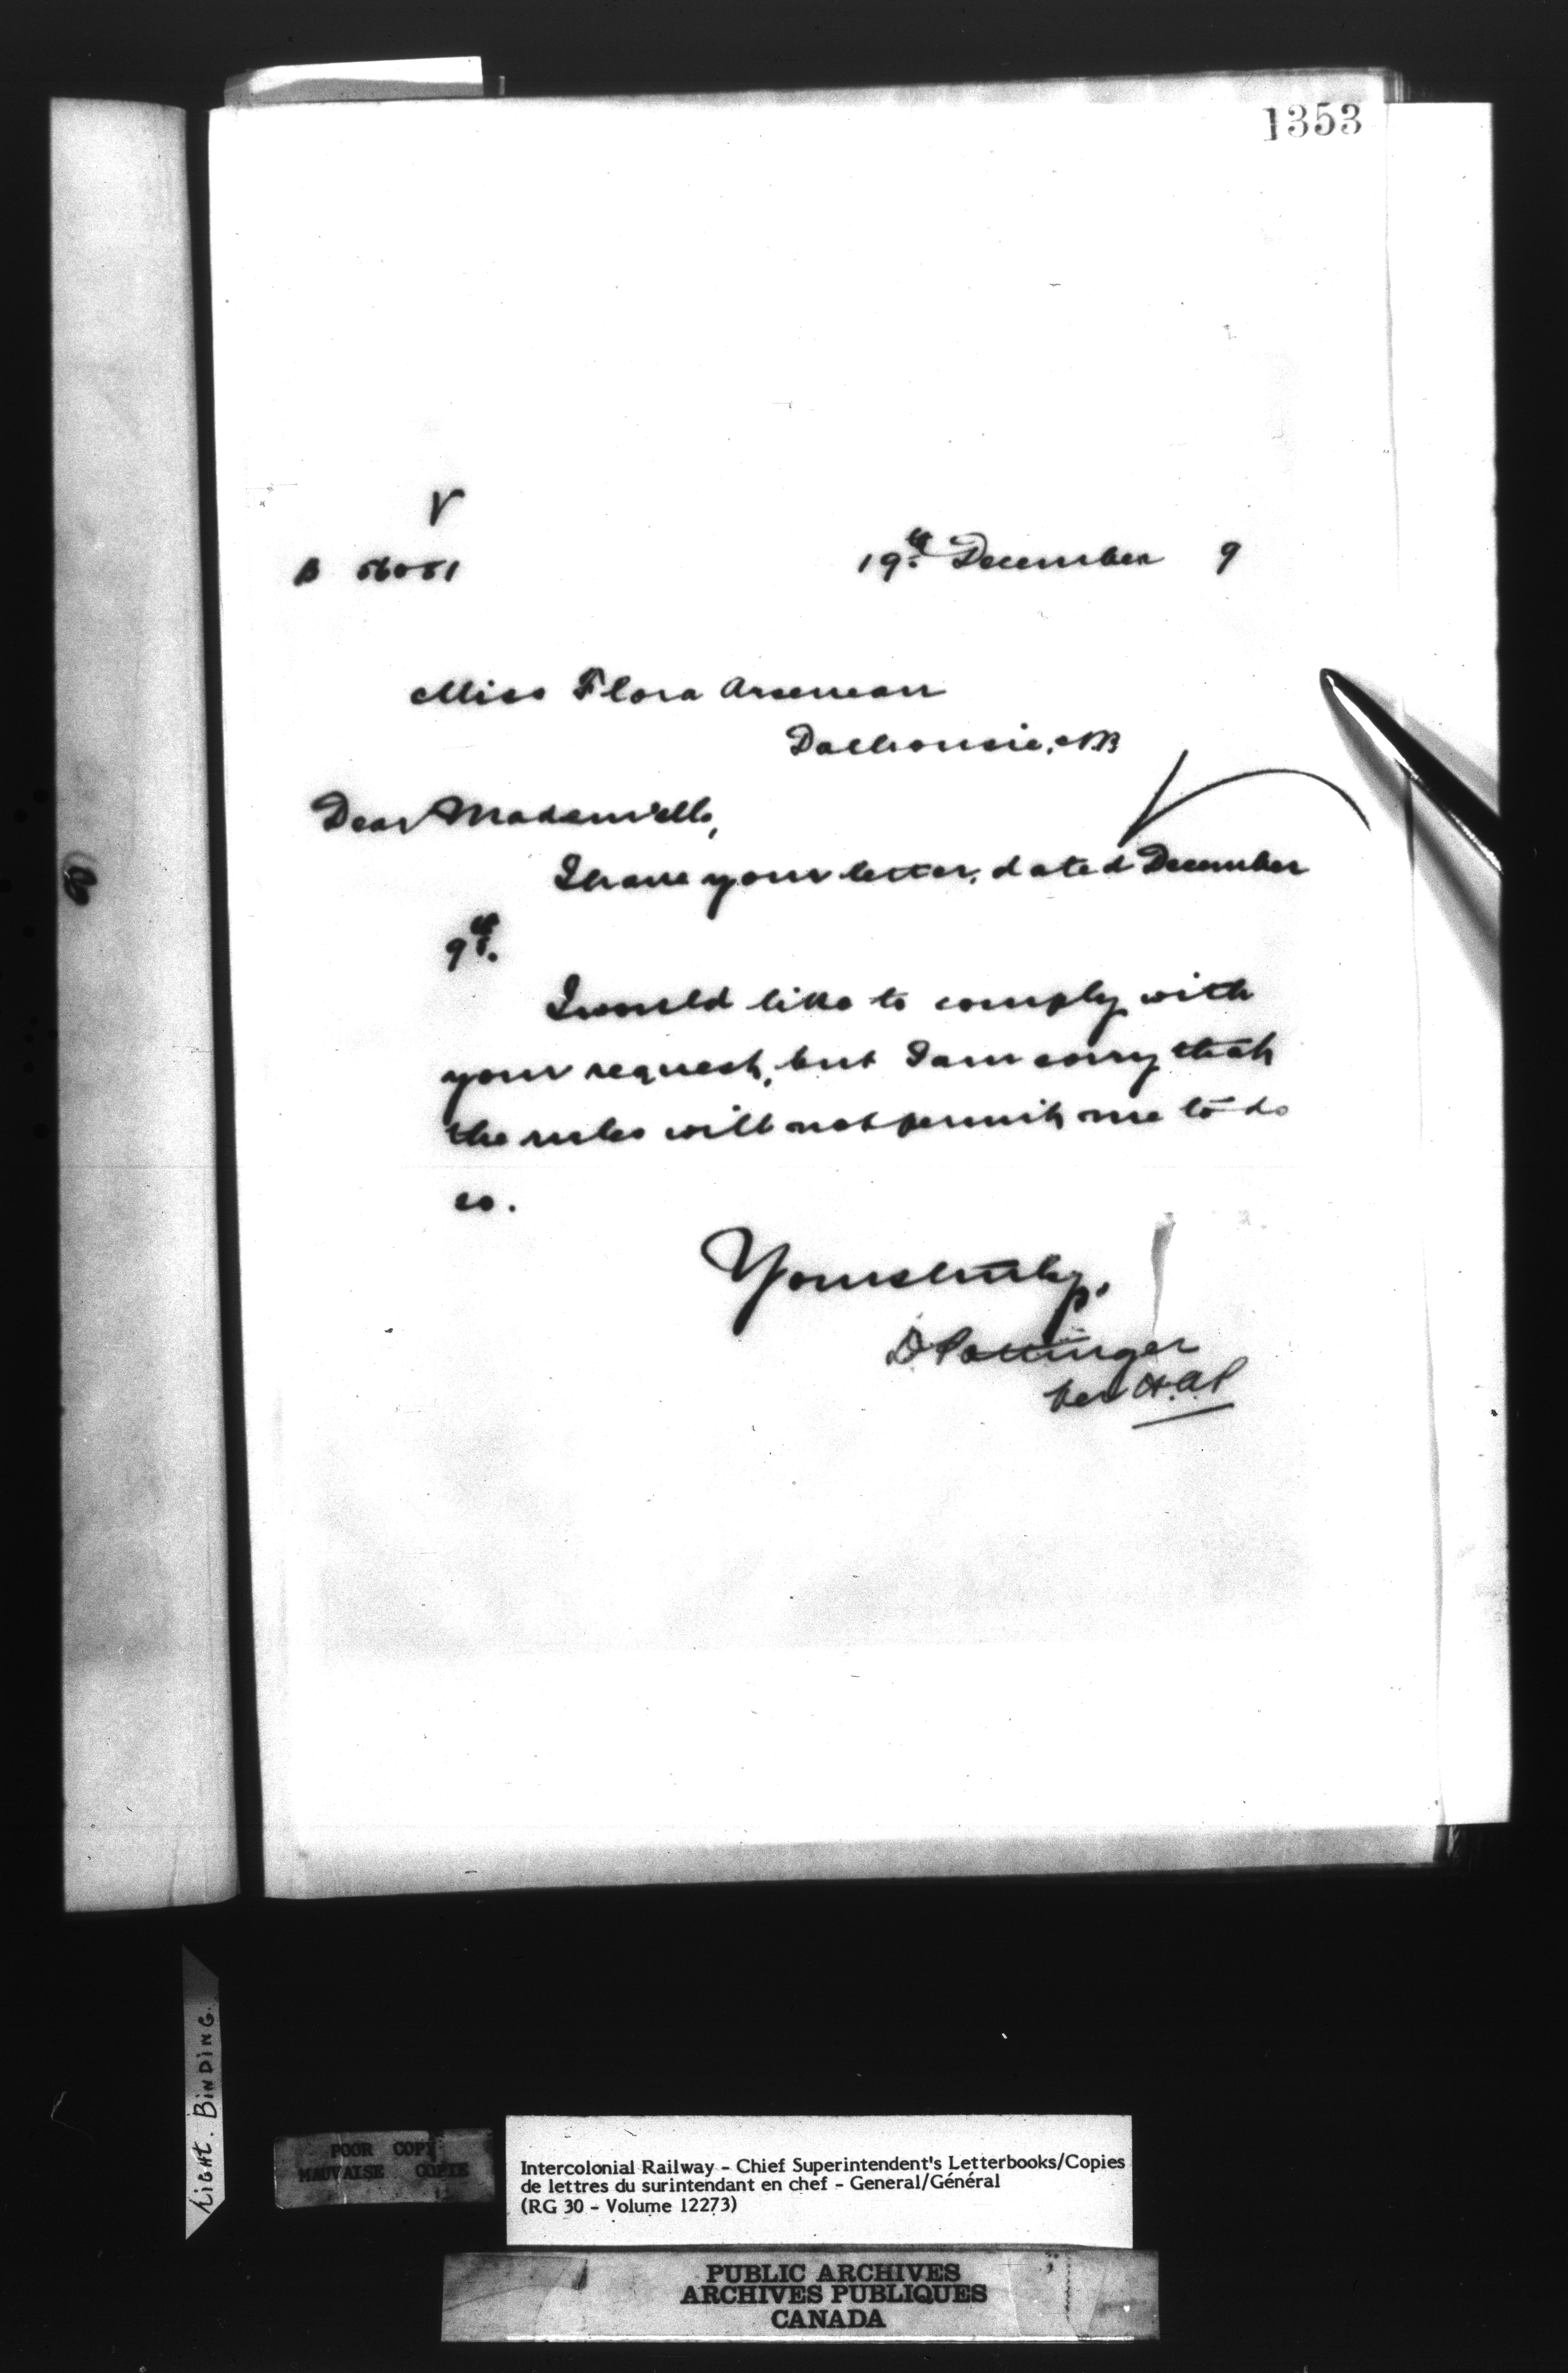 1353
V
B 56051
19th December 9
Miss Flora Arseneau
Dalhousie, NB
Dear Madem'elle,
I have your letter, dated December
9th.
I would like to comply with
your request, but I am sorry that
the rules will not permit me to do
so.
Yours truly,
D Pottinger
per H.A.P
Light. BINDING.
POOR COPY
MAUVAISE COPIE
Intercolonial Railway - Chief Superintendent's Letterbooks/Copies
de lettres du surintendant en chef - General/Général
(RG 30 - Volume 12273)
PUBLIC ARCHIVES
ARCHIVES PUBLIQUES
CANADA